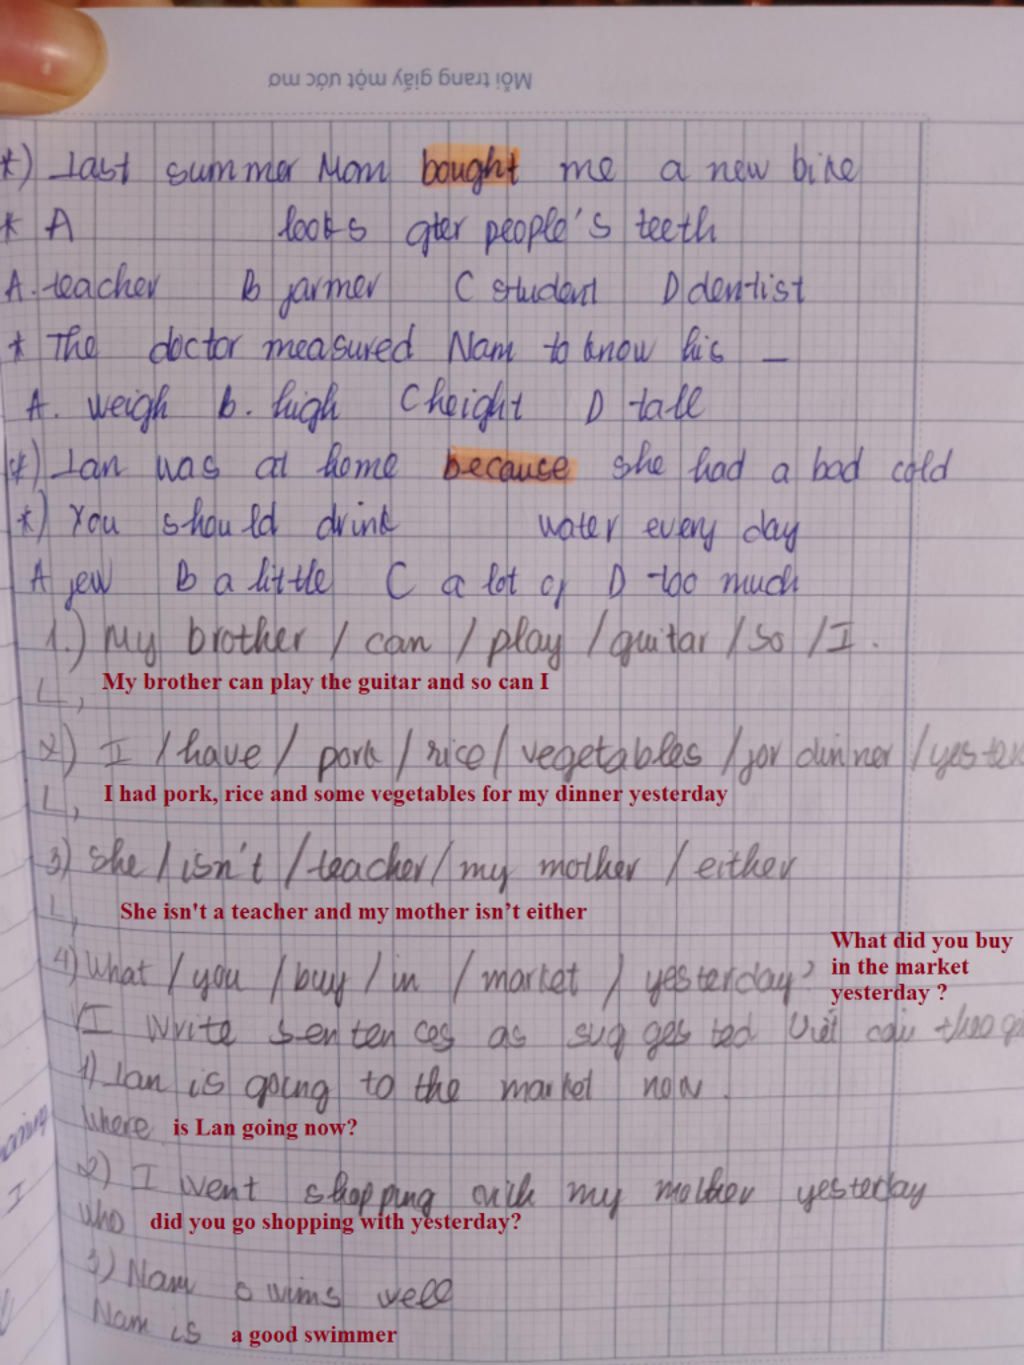 Mỗi trang giấy một ước mơ
*) Last summer Mom bought me a new bike
* A looks after people's teeth
A. teacher B farmer C student D dentist
* The doctor measured Nam to know his _
A. weigh B. high C height D tall
*) Lan was at home because she had a bad cold
*) You should drink water every day
A few B a little C a lot of D too much
1.) My brother / can / play / guitar / so / I.
My brother can play the guitar and so can I
2) I / have / pork / rice / vegetables / for dinner / yester
I had pork, rice and some vegetables for my dinner yesterday
3) She / isn't / teacher / my mother / either
She isn't a teacher and my mother isn’t either
4) What / you / buy / in / market / yesterday?
What did you buy
in the market
yesterday ?
VI Write sentences as suggested Viết câu theo
1) Lan is going to the market now.
Where is Lan going now?
2) I went shopping with my mother yesterday
Who did you go shopping with yesterday?
3) Nam swims well
Nam is a good swimmer